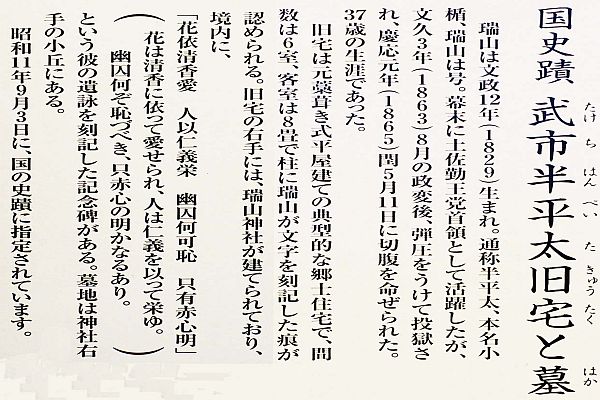 国史蹟 武市半平太旧宅と墓
たけちはんぺいたきゅうたくはか
瑞山は文政12年(1829)生まれ。通称半平太、本名小
楯、瑞山は号。幕末に土佐勤王党首領として活躍したが、
文久3年(1863)8月の政変後、弾圧をうけて投獄さ
れ、慶応元年(1865)閏5月11日に切腹を命ぜられた。
37歳の生涯であった。
旧宅は元藁葺き式平屋建ての典型的な郷士住宅で、間
数は6室、客室は8畳で柱に瑞山が文字を刻記した痕が
認められる。旧宅の右手には、瑞山神社が建てられており、
境内に、
「花依清香愛 人以仁義栄 幽囚何可恥 只有赤心明」
(花は清香に依って愛せられ、人は仁義を以って栄ゆ。
幽囚何ぞ恥づべき、只赤心の明かなるあり。)
という彼の遺詠を刻記した記念碑がある。墓地は神社右
手の小丘にある。
昭和11年9月3日に、国の史蹟に指定されています。